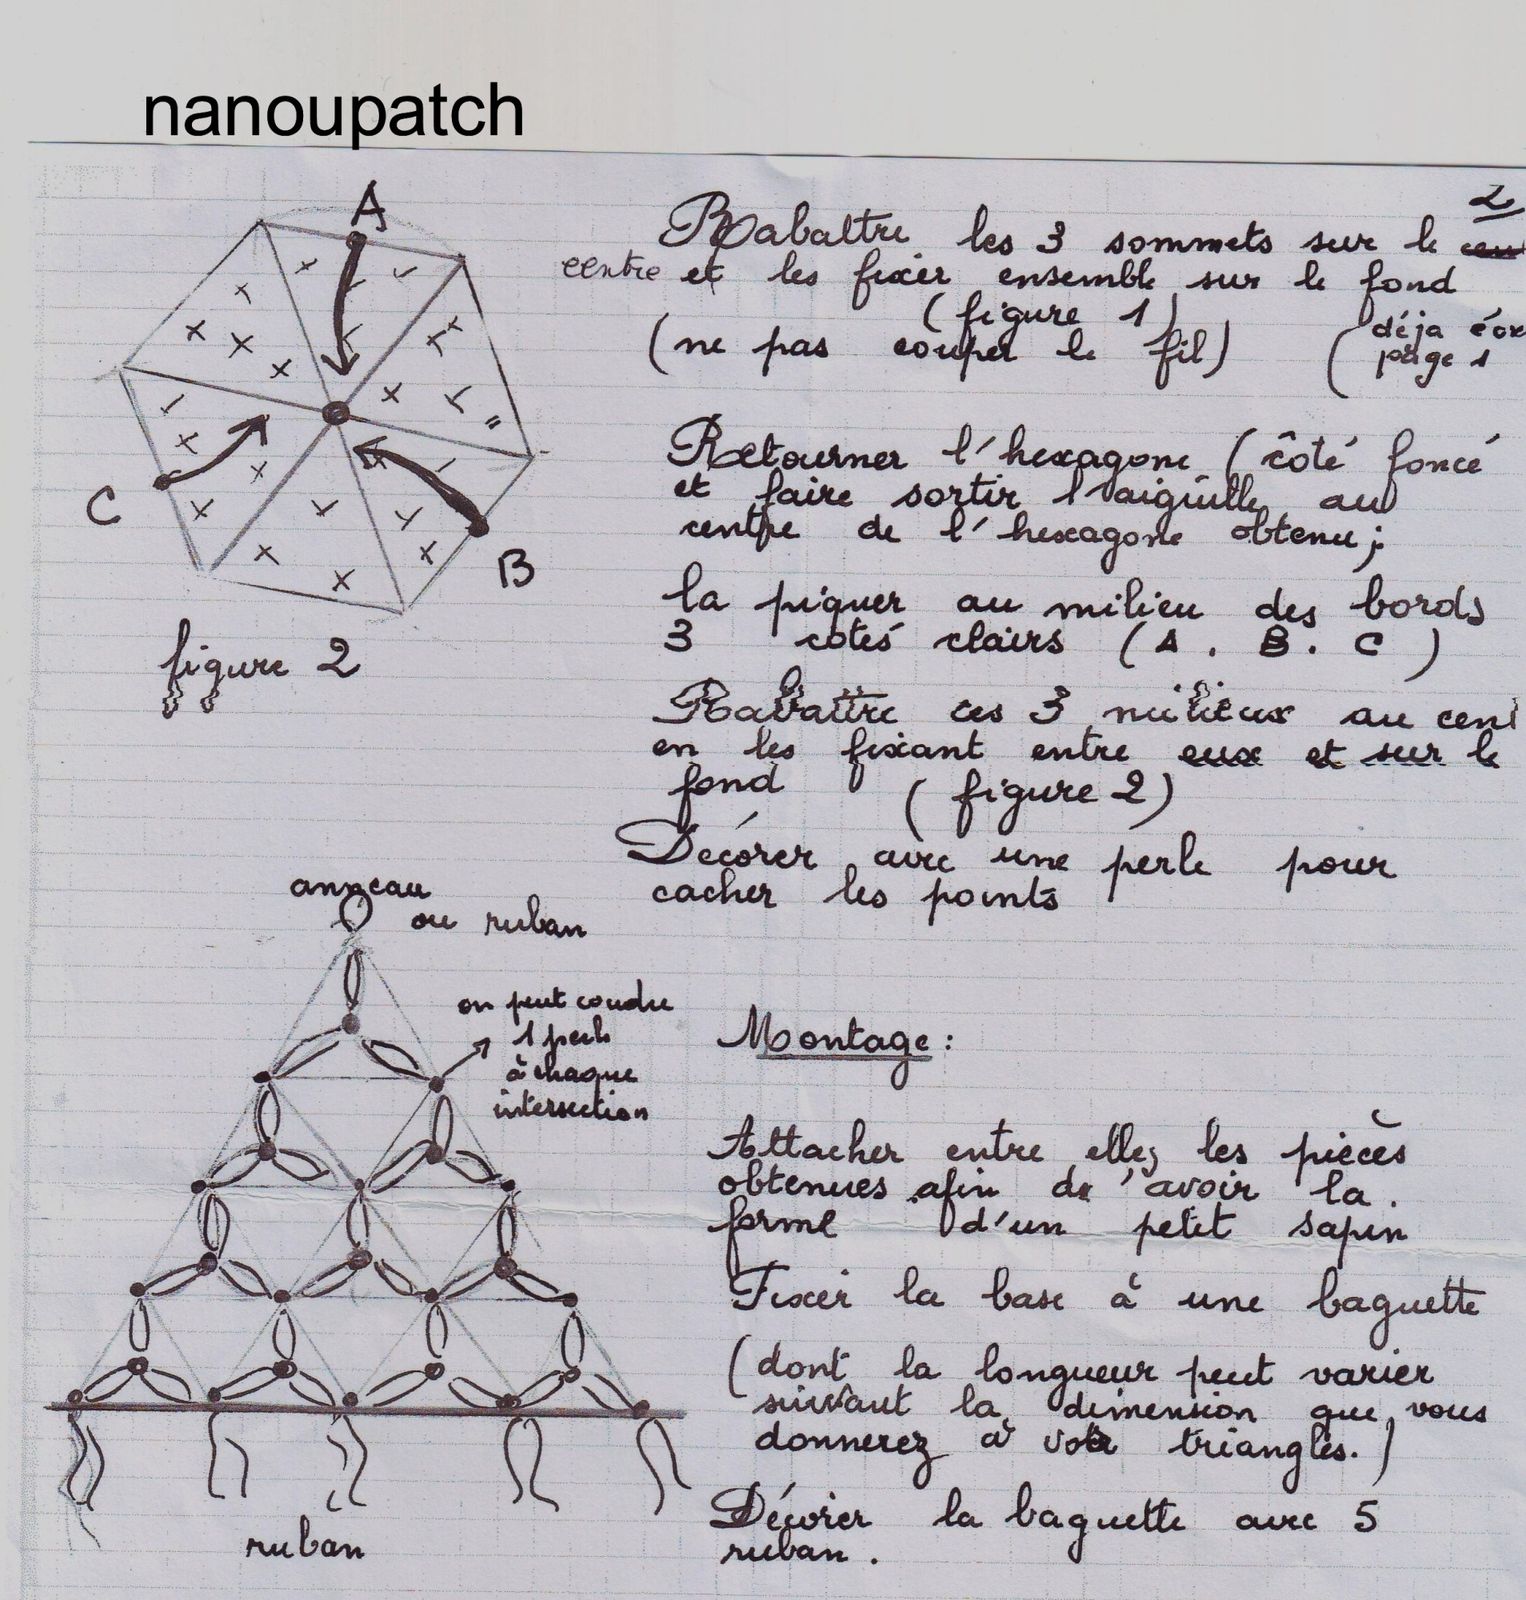 nanoupatch
2
A
C
B
figure 2
Rabattre les 3 sommets sur le
centre et les fixer ensemble sur le fond
(figure 1)
(ne pas couper le fil) (déja
page 1
Retourner l'hexagone (côté foncé
et faire sortir l'aiguille au
centre de l'hexagone obtenu;
la piquer au milieu des bords
3 cotés clairs (A. B. C)
Rabattre ces 3 milieux au cent
en les fixant entre eux et sur le
fond (figure 2)
Décorer avec une perle pour
cacher les points
anneau
ou ruban
on peut coudre
1 perle
à chaque
intersection
Montage :
Attacher entre elles les pièces
obtenues afin d'avoir la
forme d'un petit sapin
Fixer la base à une baguette
(dont la longueur peut varier
suivant la dimension que vous
donnerez à vos triangles.)
Décorer la baguette avec 5
ruban.
ruban